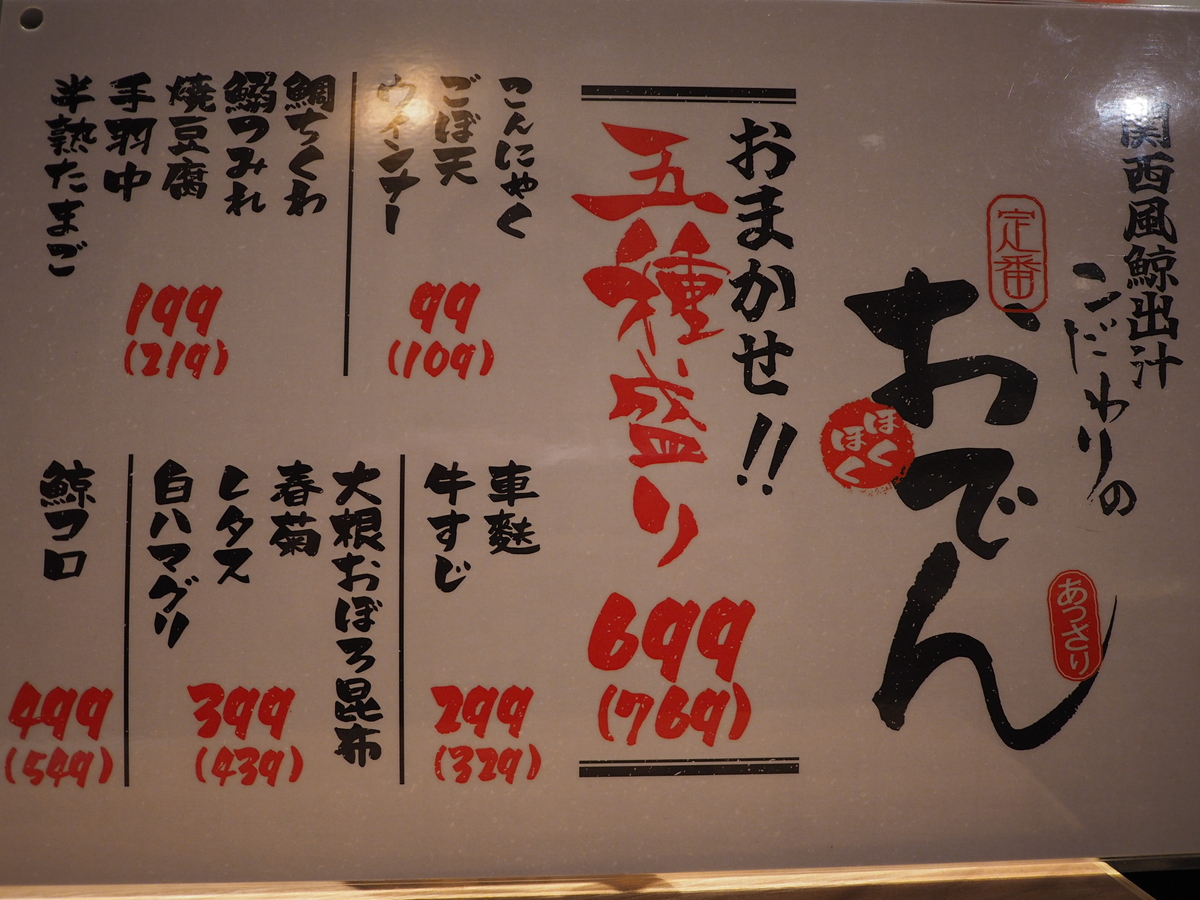 関西風鯨出汁
こだわりの
定番
おでん
ほくほく
あっさり
おまかせ!!
五種盛り
699
(769)
こんにゃく
ごぼ天
ウインナー
99
(109)
鯛ちくわ
鰯つみれ
焼豆腐
手羽中
半熟たまご
199
(219)
車麩
牛すじ
299
(329)
大根おぼろ昆布
春菊
レタス
白ハマグリ
399
(439)
鯨コロ
499
(549)